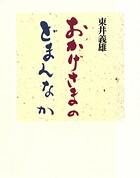 東井義雄
おかげさまの
どまんなか